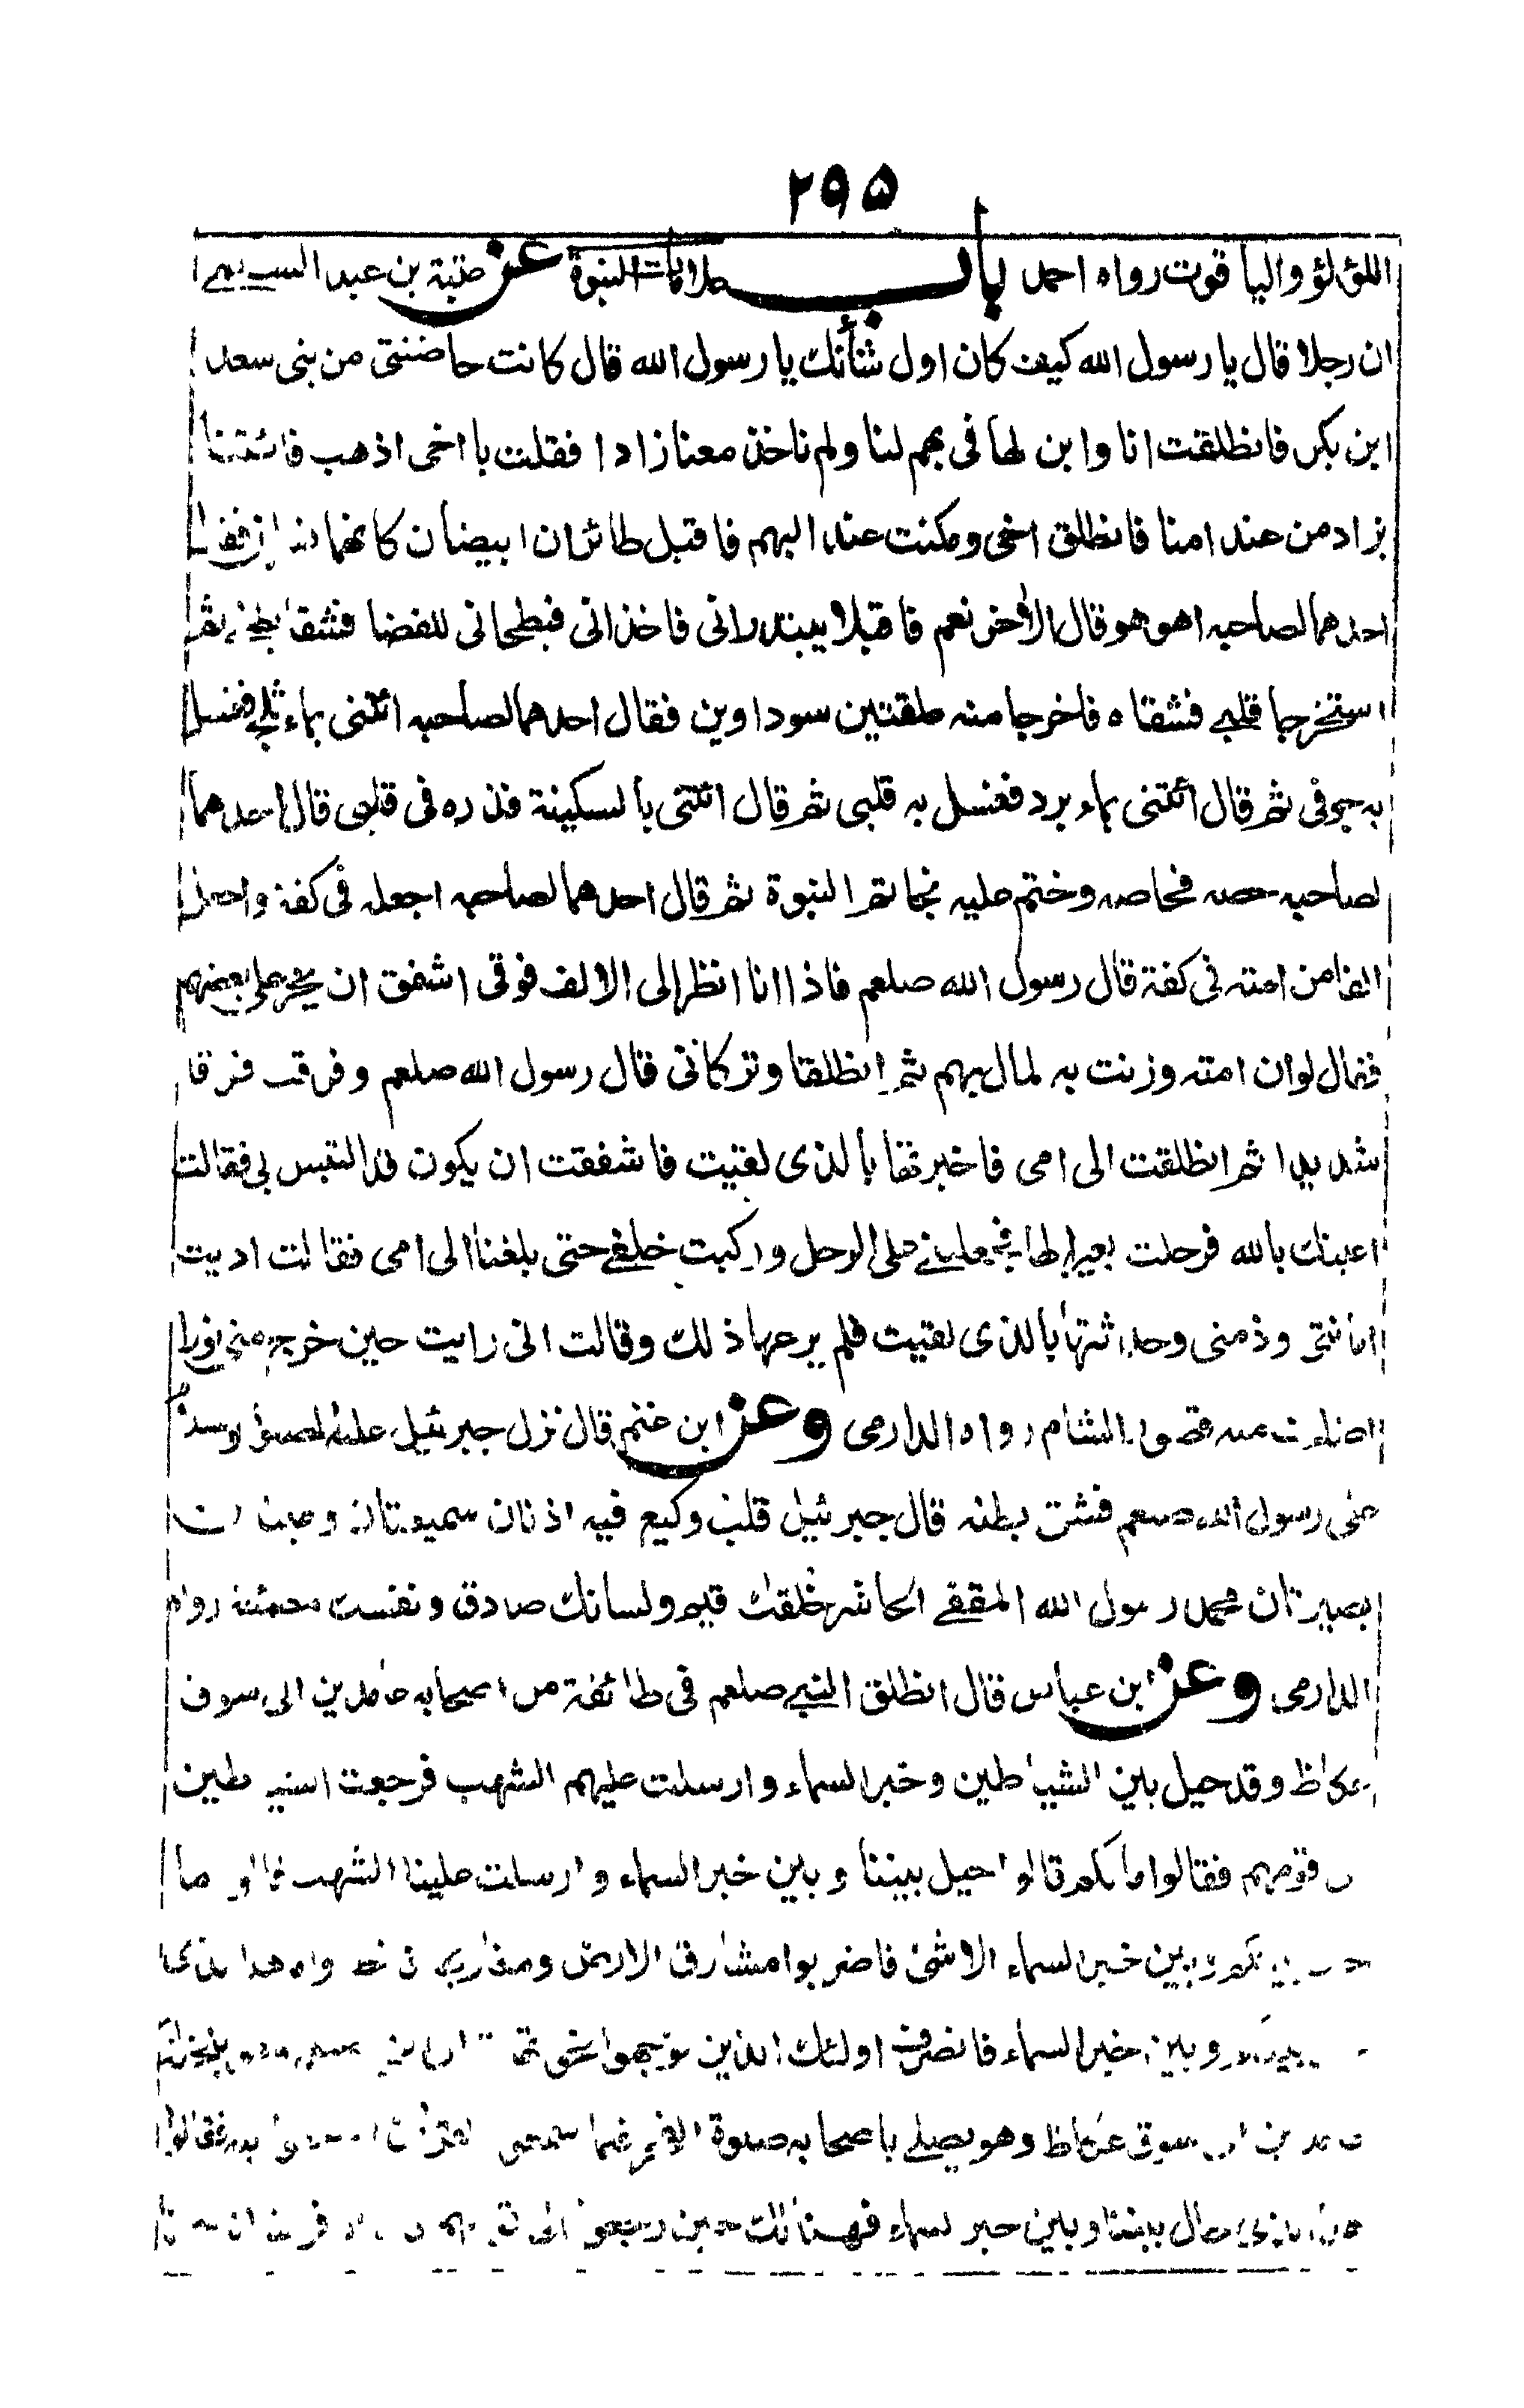 ٢٩٥
اللؤلؤ والياقوت رواه احمد باب علامات النبوة عن عتبة بن عبد السلمي
ان رجلا قال يا رسول الله كيف كان اول شأنك يا رسول الله قال كانت حاضنتى من بنى سعد
ابن بكر فانطلقت انا وابن لها فى بهم لنا ولم ناخذ معنا زادا فقلت يا اخى اذهب فائتنا
بزاد من عند امنا فانطلق اخى ومكثت عند البهم فاقبل طائران ابيضان كانهما نسران فقال
احدهما لصاحبه اهو هو قال الآخر نعم فاقبلا يبتدرانى فاخذانى فبطحانى للقضا فشقا بطنى ثم
استخرجا قلبى فشقاه فاخرجا منه علقتين سوداوين فقال احدهما لصاحبه ائتنى بماء ثلج فغسل
به جوفى ثم قال ائتنى بماء برد فغسل به قلبى ثم قال ائتنى بالسكينة فذره فى قلبى قال احدهما
لصاحبه حصه فحاصه وختم عليه بخاتم النبوة ثم قال احدهما لصاحبه اجعله فى كفة واجعل
الفا من امته فى كفة قال رسول الله صلعم فاذا انا انظر الى الالف فوقى اشفق ان يخر على بعضهم
فقال لو ان امته وزنت به لمال بهم ثم انطلقا وتركانى قال رسول الله صلعم وفرقت فرقا
شديدا ثم انطلقت الى امى فاخبرتها بالذى لقيت فاشفقت ان يكون قد التبس بى فقالت
اعيذك بالله فرحلت بعيرا لها فجعلتنى على الرحل وركبت خلفى حتى بلغنا الى امى فقالت اديت
امانتى وذمتى وحدثتها بالذى لقيت فلم يرعها ذلك وقالت انى رايت حين خرج منى نورا
اضاءت منه قصور الشام رواه الدارمى وعن ابن غنم قال نزل جبرئيل عليه الصلوة والسلام
على رسول الله صلعم فشق بطنه قال جبرئيل قلب وكيع فيه اذنان سميعتان وعينان
بصيرتان محمد رسول الله المقفى الحاشر خلقك قيم ولسانك صادق ونفسك مطمئنة رواه
الدارمى وعن ابن عباس قال انطلق النبى صلعم فى طائفة من اصحابه عامدين الى سوق
عكاظ وقد حيل بين الشياطين وخبر السماء وارسلت عليهم الشهب فرجعت الشياطين
قومهم فقالوا ما لكم قالوا حيل بيننا وبين خبر السماء وارسلت علينا الشهب قالوا ما
بينكم وبين خبر السماء الا شئ فاضربوا مشارق الارض ومغاربها هذا الذى
بينكم وبين خبر السماء فانصرف اولئك الذين توجهوا نحو تهامة بنخلة
سوق عكاظ وهو يصلى باصحابه صلوة الفجر فلما سمعوا القرآن فقالوا
هذا الذى حال بيننا وبين خبر السماء فهنالك حين رجعوا الى